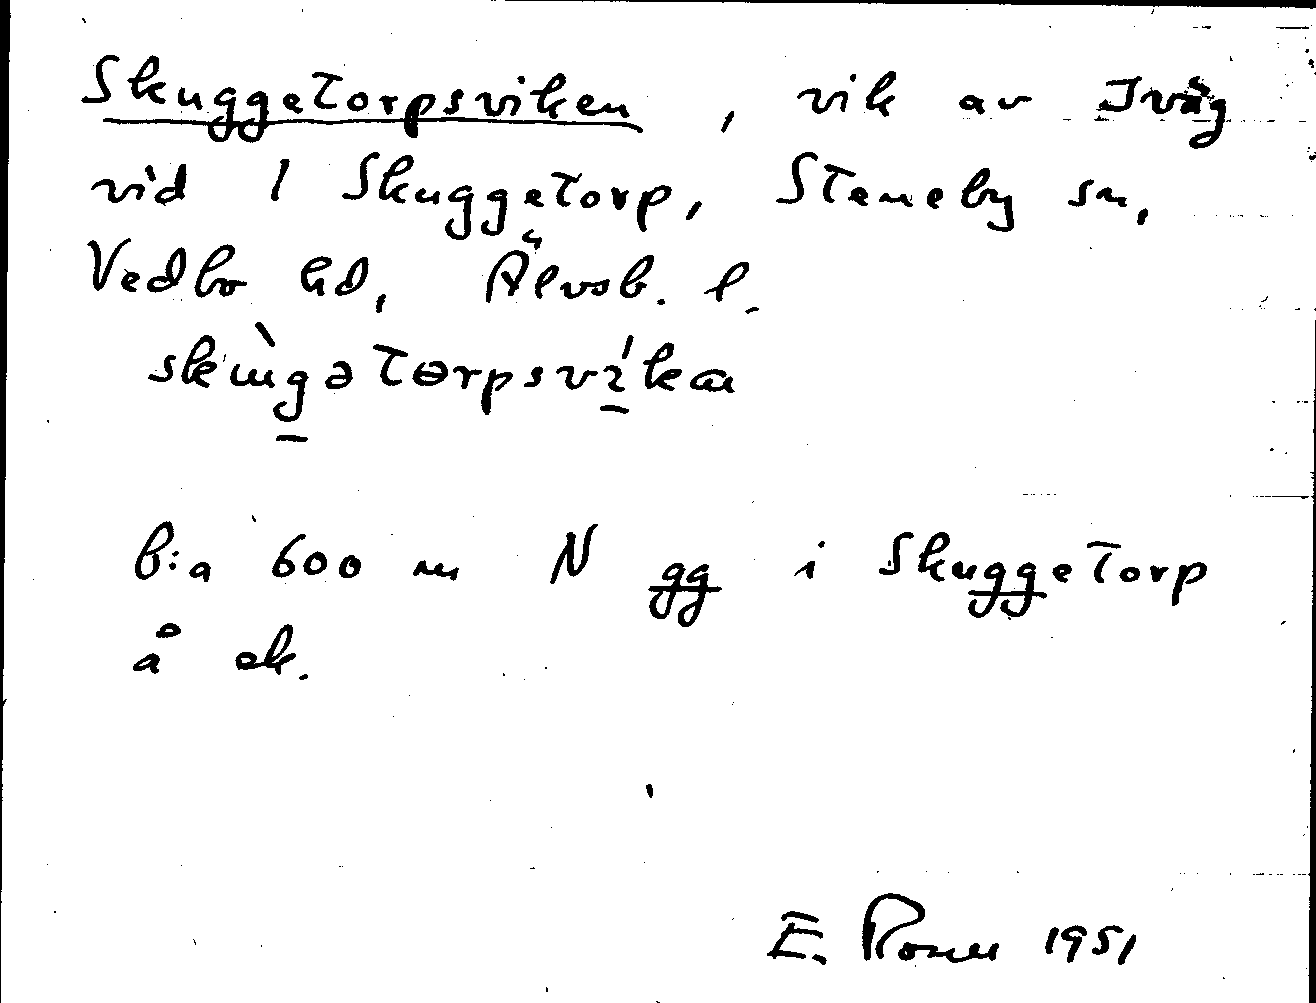 Skuggetorpsviken, vik av Iväg
vid 1 Skuggetorp, Steneby sn,
Vedbo hd, Älvsb. l.
skùgətɵrpsvíkɑ
b:a 600 m N gg i Skuggetorp
å ek.
E. Rosell 1951